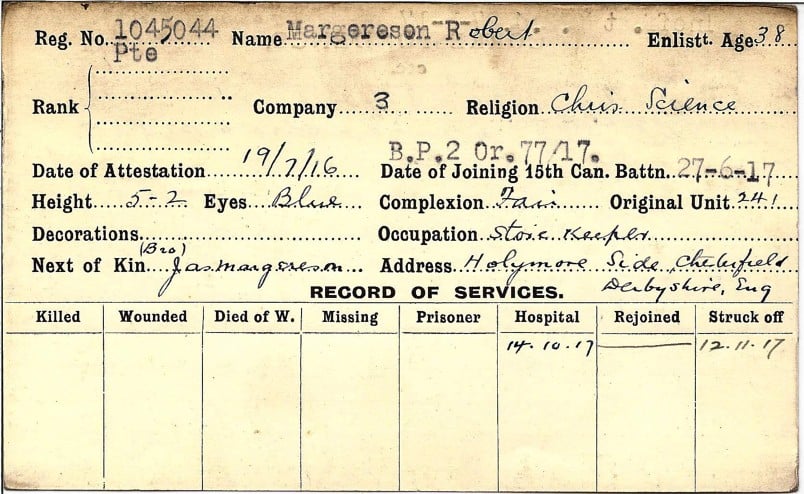 Reg. No. 1045044 Name Margereson R obert Enlistt. Age 38
Pte
Rank Company 3 Religion Chris Science
B.P.2 Or.77/17.
Date of Attestation 19/7/16 Date of Joining 15th Can. Battn. 27-6-17
Height 5-2 Eyes Blue Complexion Fair Original Unit 241
Decorations Occupation Store Keeper
(Bro)
Next of Kin Jas Margereson Address Holymore Side, Chesterfield
Derbyshire, Eng
RECORD OF SERVICES.
Killed Wounded Died of W. Missing Prisoner Hospital Rejoined Struck off
14.10.17 12.11.17